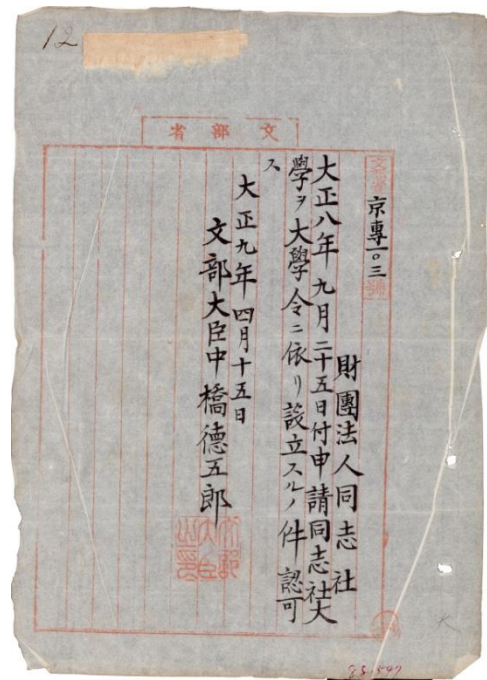 12
文部省
文部省京專一〇三號
財團法人同志社
大正八年九月二十五日付申請同志社大
學ヲ大學令ニ依リ設立スルノ件認可
ス
大正九年四月十五日
文部大臣中橋德五郎
文部大臣之印